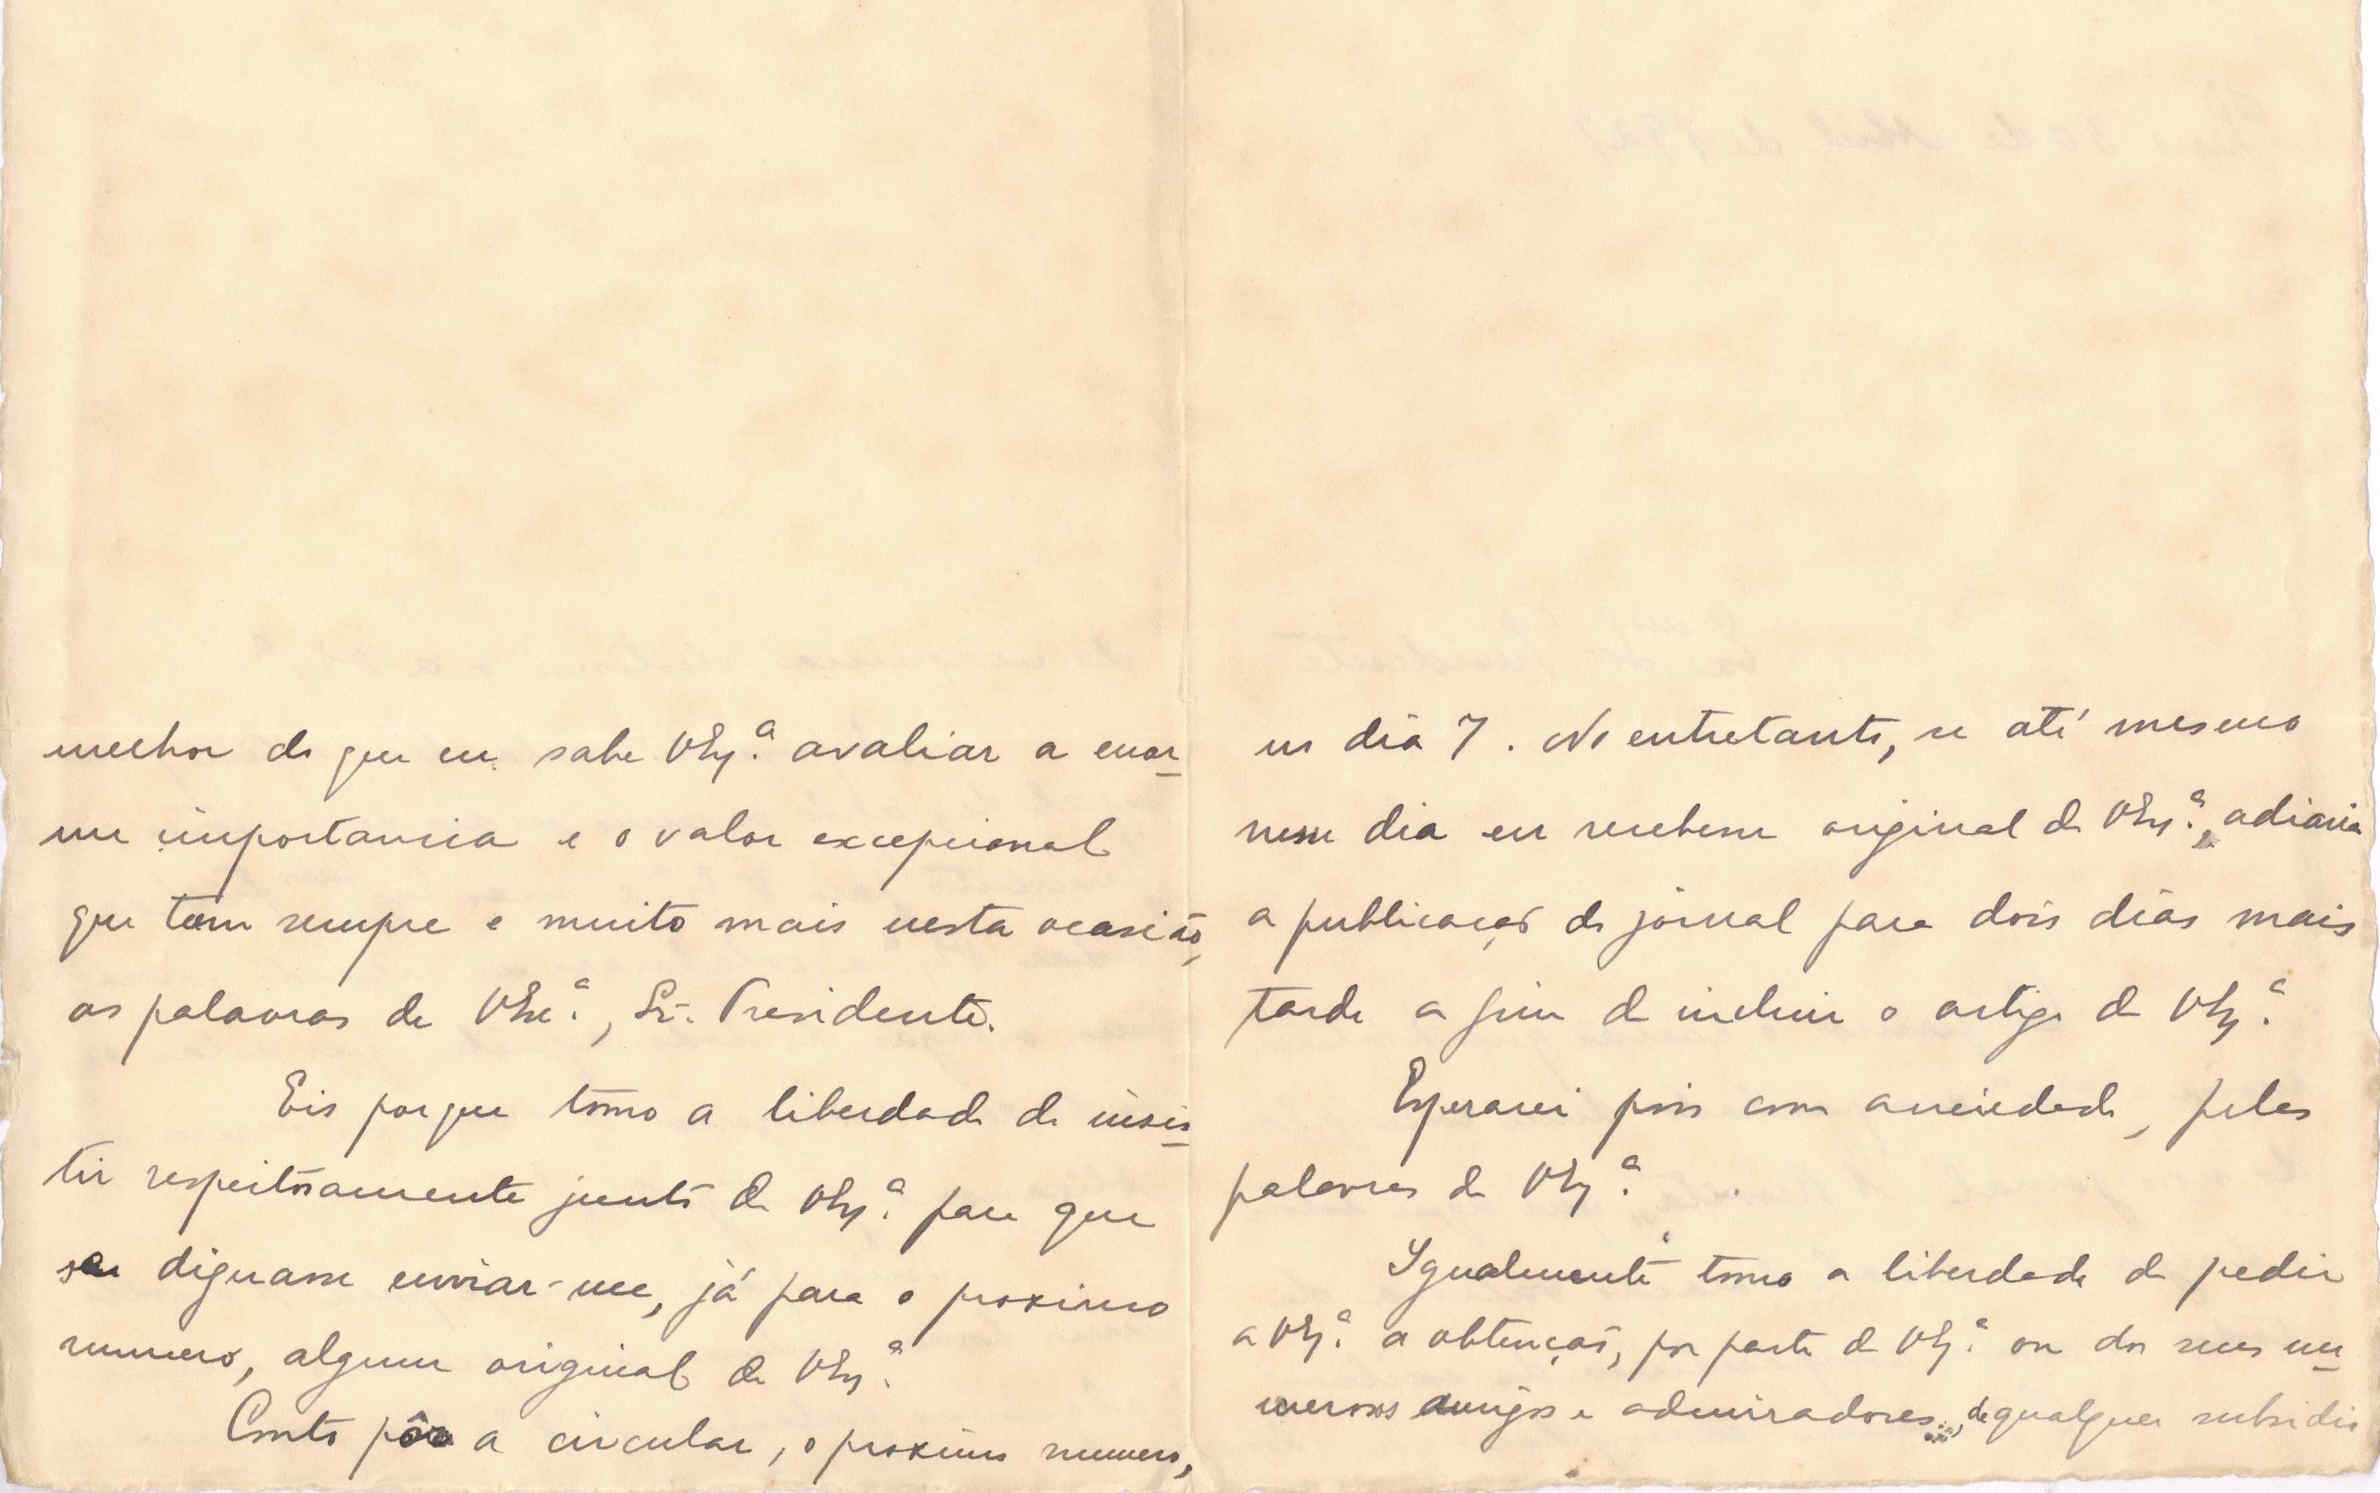 melhor do que eu sabe VEx.ª avaliar a enor-
me importancia e o valor excepcional
que têm sempre e muito mais nesta ocasião,
as palavras de VExª., Sr. Presidente.
Eis porque tômo a liberdade de insis-
tir respeitosamente junto de VEx.ª para que
se dignasse enviar-me, já para o proximo
numero, algum original de VEx.ª
Conto pôr a circular, o proximo numero,
no dia 7. No entretanto, se até mesmo
nesse dia eu recebesse original de VEx.ª, adiaria
a publicação do jornal para dois dias mais
tarde a fim de incluir o artigo de VEx.ª
Esperarei pois com anciedade, pelas
palavras de VEx.ª
Igualmente tomo a liberdade de pedir
a VEx.ª a obtenção, por parte de VEx.ª ou dos seus nu-
merosos amigos e admiradores, de qualquer subsidio